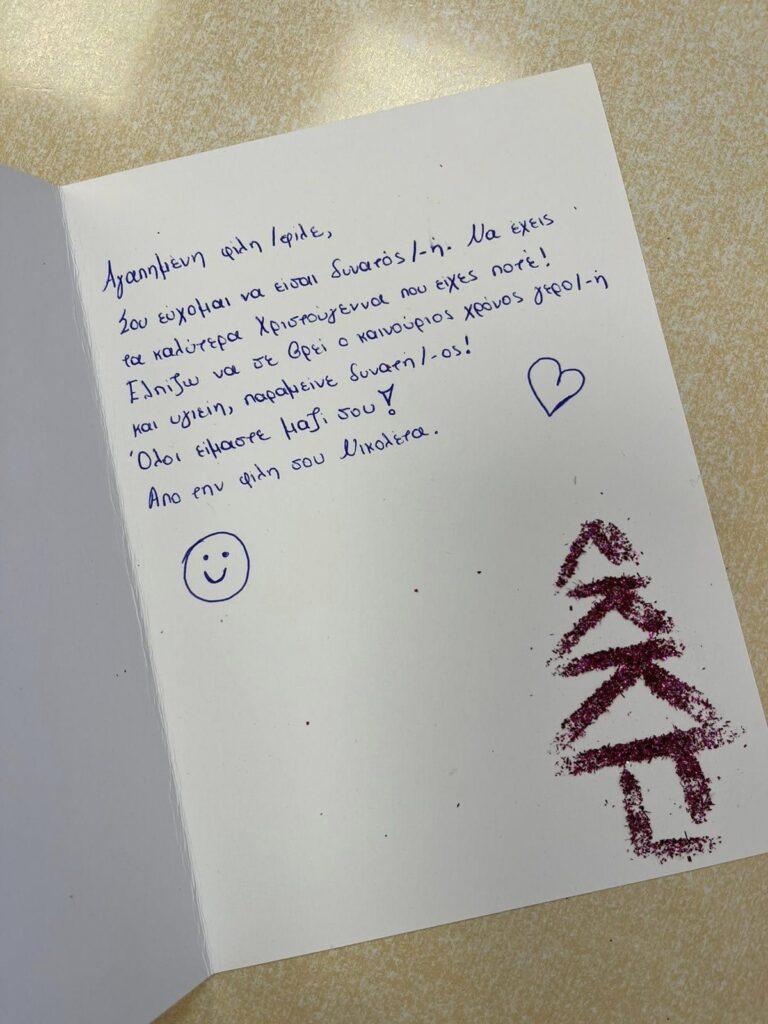 Αγαπημένη φίλη/φίλε,
Σου εύχομαι να είσαι δυνατός/-ή. Να έχεις
τα καλύτερα Χριστούγεννα που είχες ποτέ!
Ελπίζω να σε βρεί ο καινούριος χρόνος γερο/-ή
και υγιείη, παραμείνε δυνατή/-ος!
Όλοι είμαστε μαζί σου!
Απο την φίλη σου Νικολέτα.